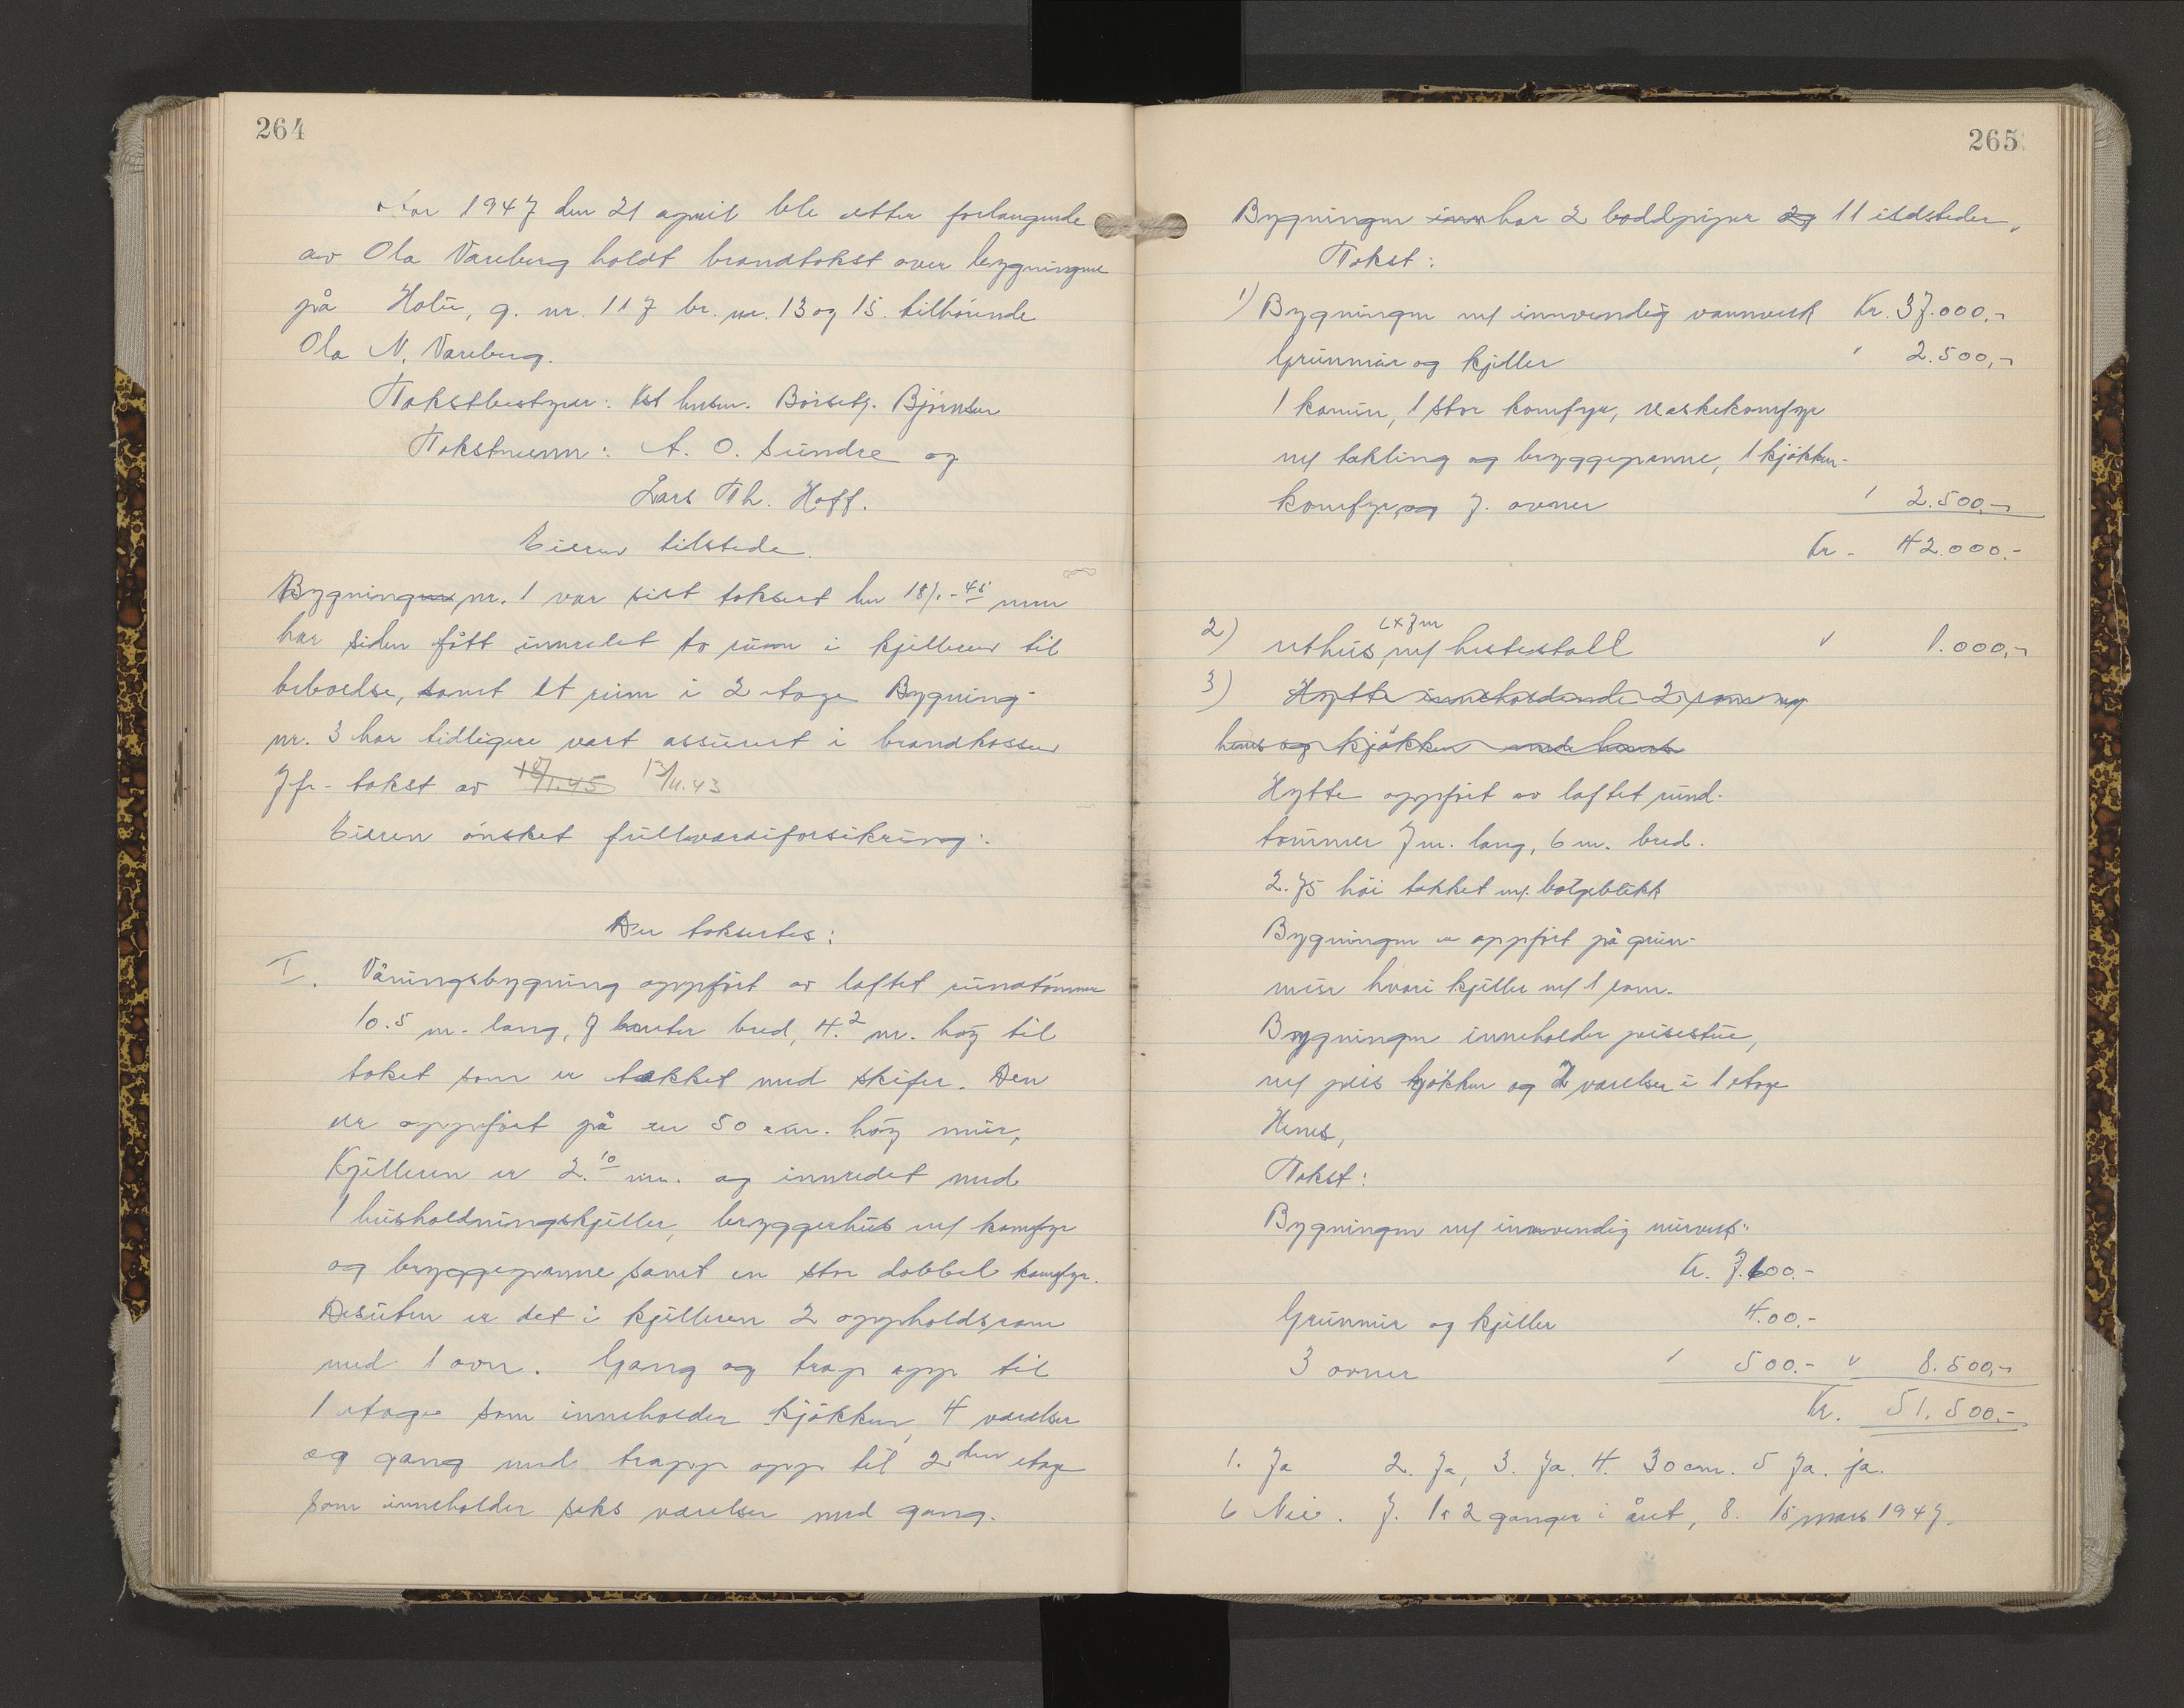 264
År 1947 den 21 april ble etter forlangende
av Ola Vareberg holdt brandtakst over bygningene
på Holie, g. nr. 117 br. nr. 13 og 15. tilhörende
Ola N. Vareberg.
Takstbestyrer: lensm. Björnsen
Takstmenn: A. O. Sundre og
Lars Th. Hoff.
Eieren tilstede.
Bygning nr. 1 var sist taksert den 18/1-45 men
har siden fått innredet to rum i kjelleren til
beboelse, samt et rum i 2 etage Bygning
nr. 3 har tidligere vært assurert i brandkassen
Jfr. takst av 18/1.45 13/11.43
Eieren önsket fullverdiforsikring:
Der taksertes:
I. Våningsbygning oppfört av laftet rundtömmer
10.5 m. lang, 7 meter bred, 4.2 m. höy til
taket som er tekket med skifer. Den
er oppfört på en 50 cm. höy mur,
Kjelleren er 2.10 m. og innredet med
1 husholdningskjeller, bryggerhus m/ komfyr
og bryggepanne samt en stor dobbel komfyr.
Desuten er det i kjelleren 2 oppholdsrom
med 1 ovn. Gang og trap opp til
1 etage som inneholder kjökken, 4 værelser
og gang med trapp opp til 2den etage
som inneholder seks værelser med gang.
265
Bygningen har 2 boddpiper og 11 ildsteder.
Takst:
1) Bygningen m/ innvendig vannverk Kr. 37.000.-
Grunnmur og kjeller " 2.500,-
1 kamin, 1 stor komfyr, vaskekomfyr
m/ takling og bryggepanne, 1 kjökken-
komfyr og 7. ovner " 2.500.-
Kr. 42.000.-
2) uthus 6x7m m/ hestestall " 1.000,-
3) Hytte inneholdende 2 rom og
hems og kjökken
Hytte oppfört av laftet rund-
tömmer 7 m. lang, 6 m. bred.
2.75 höi tekket m/ bölgeblikk
Bygningen er oppfört på grun-
mur hvori kjeller m/ 1 rom.
Bygningen inneholder peisestue,
m/ peis kjökken og 2 værelser i 1 etage
Hems,
Takst:
Bygningen m/ innvendig murverk:
Kr. 7.600.-
Grunnmur og kjeller 4.00.-
3 ovner " 500.- " 8.500,-
Kr. 51.500.-
1. Ja 2. Ja, 3. Ja. 4. 30 cm. 5 Ja. ja.
6 Nei. 7. 1 a 2 ganger i året, 8. 15 mars 1947.